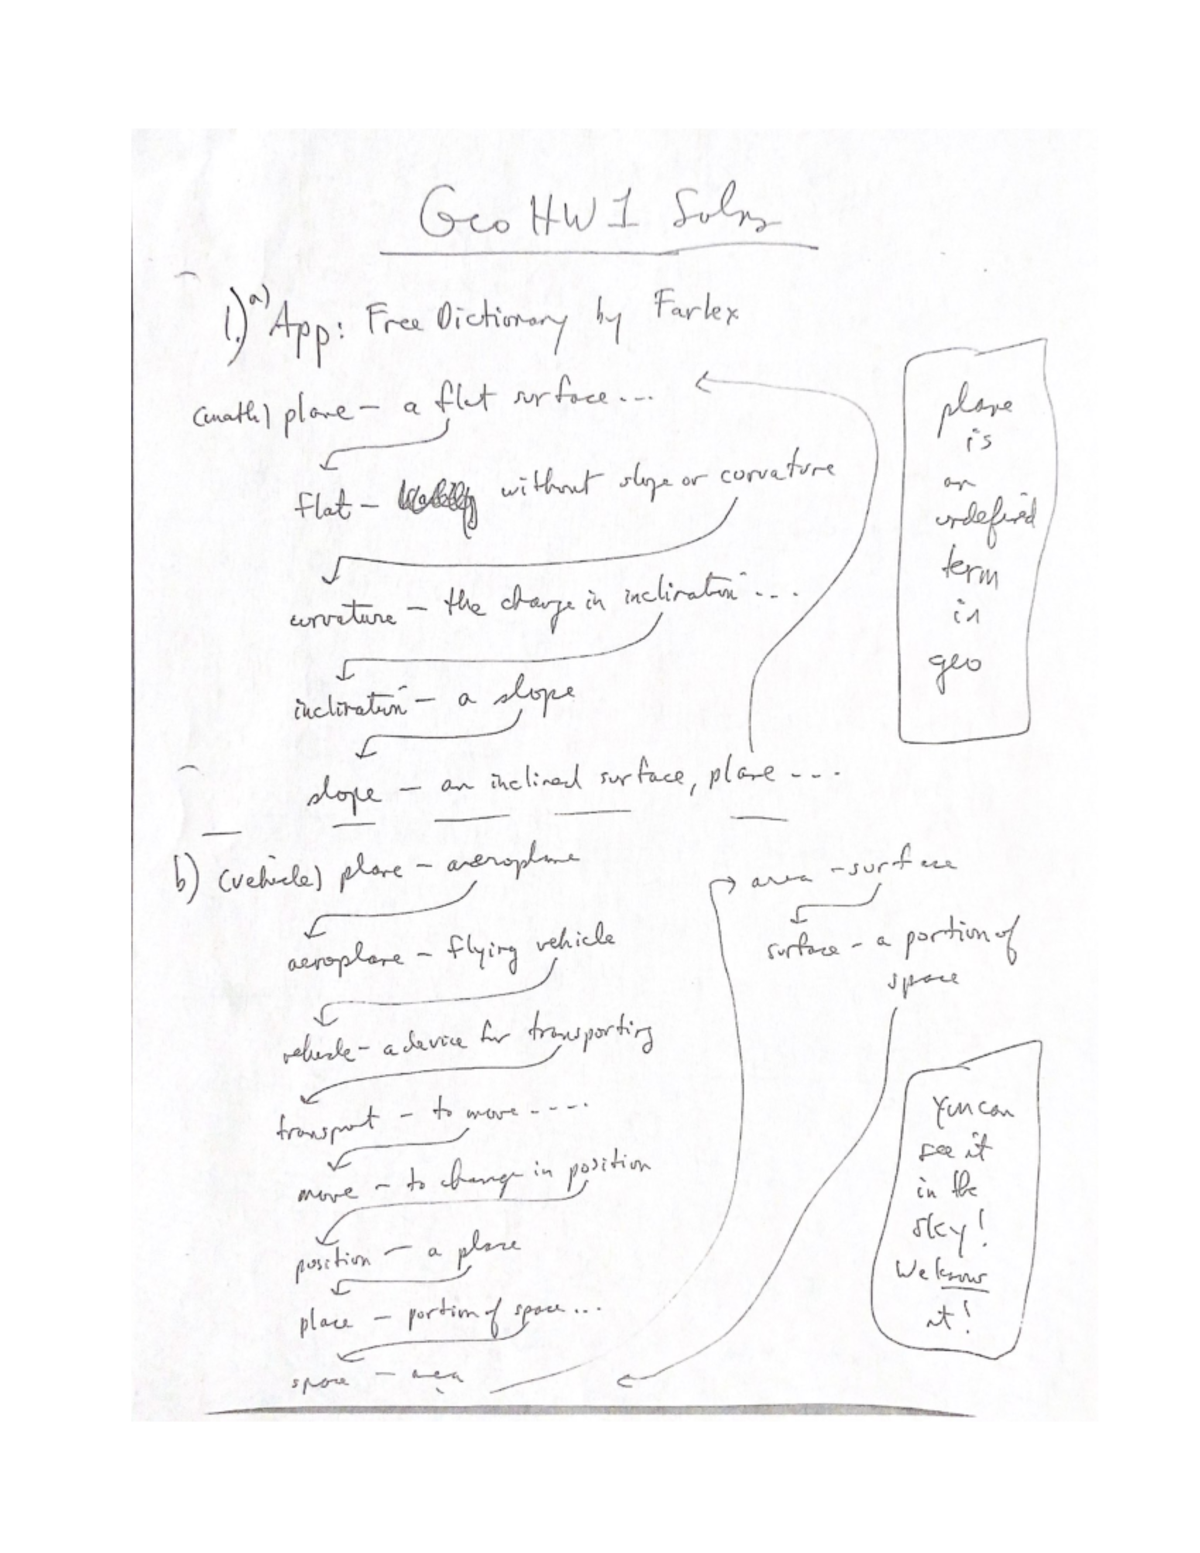 Geo HW 1 Solns
1.) a) App: Free Dictionary by Farlex
(math) plane - a flat surface...
flat - without slope or curvature
curvature - the change in inclination...
inclination - a slope
slope - an inclined surface, plane ...
plane
is
an
undefined
term
in
geo
b) (vehicle) plane - aeroplane
aeroplane - flying vehicle
vehicle - a device for transporting
transport - to move ....
move - to change in position
position - a place
place - portion of space...
space - area
area - surface
surface - a portion of
space
You can
see it
in the
sky!
We know
it!